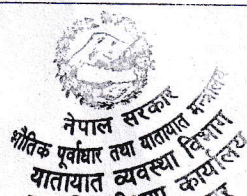 नेपाल सरकार
भौतिक पूर्वाधार तथा यातायात मन्त्रालय
यातायात व्यवस्था विभाग
कार्यालय